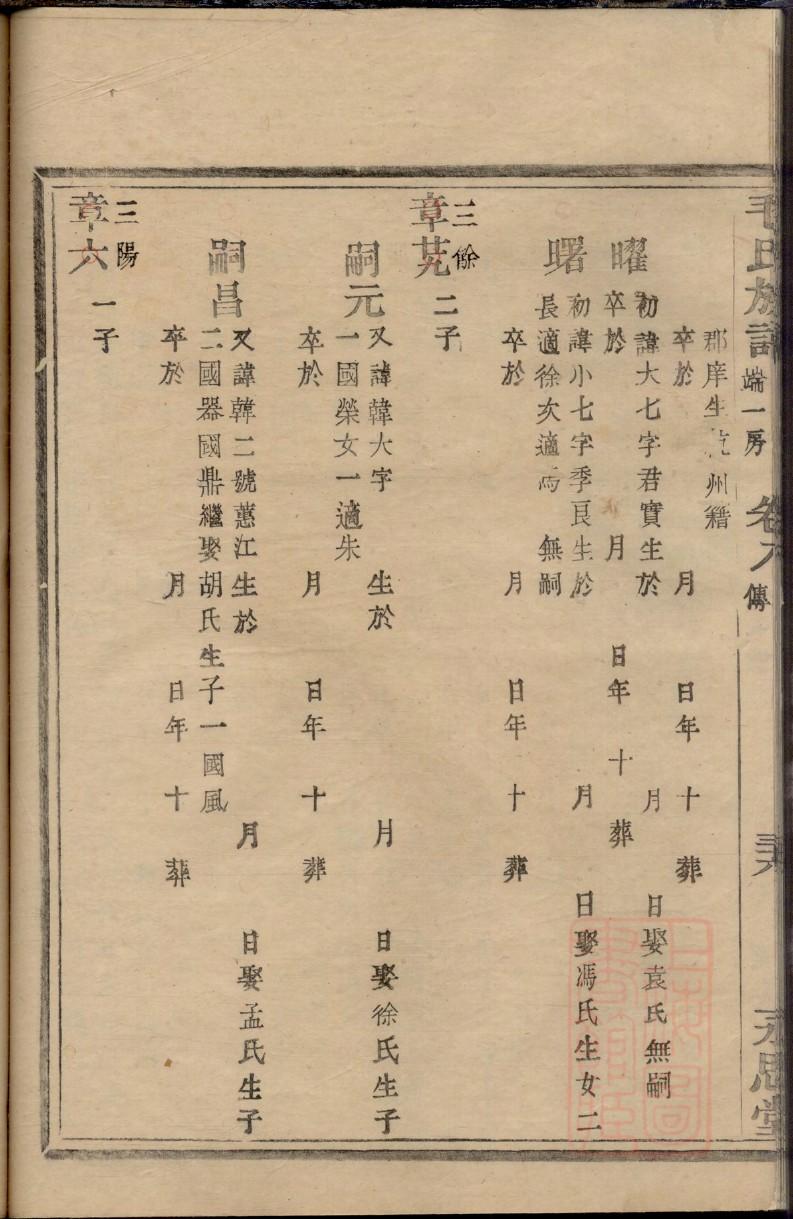 毛氏族譜 端一房 卷 傳 永思堂
郡庠生 州籍
卒於 月 日年 十 葬
曜 初諱大七字君實生於 月 日娶袁氏無嗣
卒於 月 日年 十 葬
曙 初諱小七字季良生於 月 日娶馮氏生女二
長適徐次適馮 無嗣
卒於 月 日年 十 葬
三餘
章芫 二子
嗣元 又諱韓大字 生於 月 日娶徐氏生子
一國榮女一適朱
卒於 月 日年 十 葬
嗣昌 又諱韓二號蕙江生於 月 日娶孟氏生子
二國器國鼎繼娶胡氏生子一國風
卒於 月 日年 十 葬
三陽
章六 一子